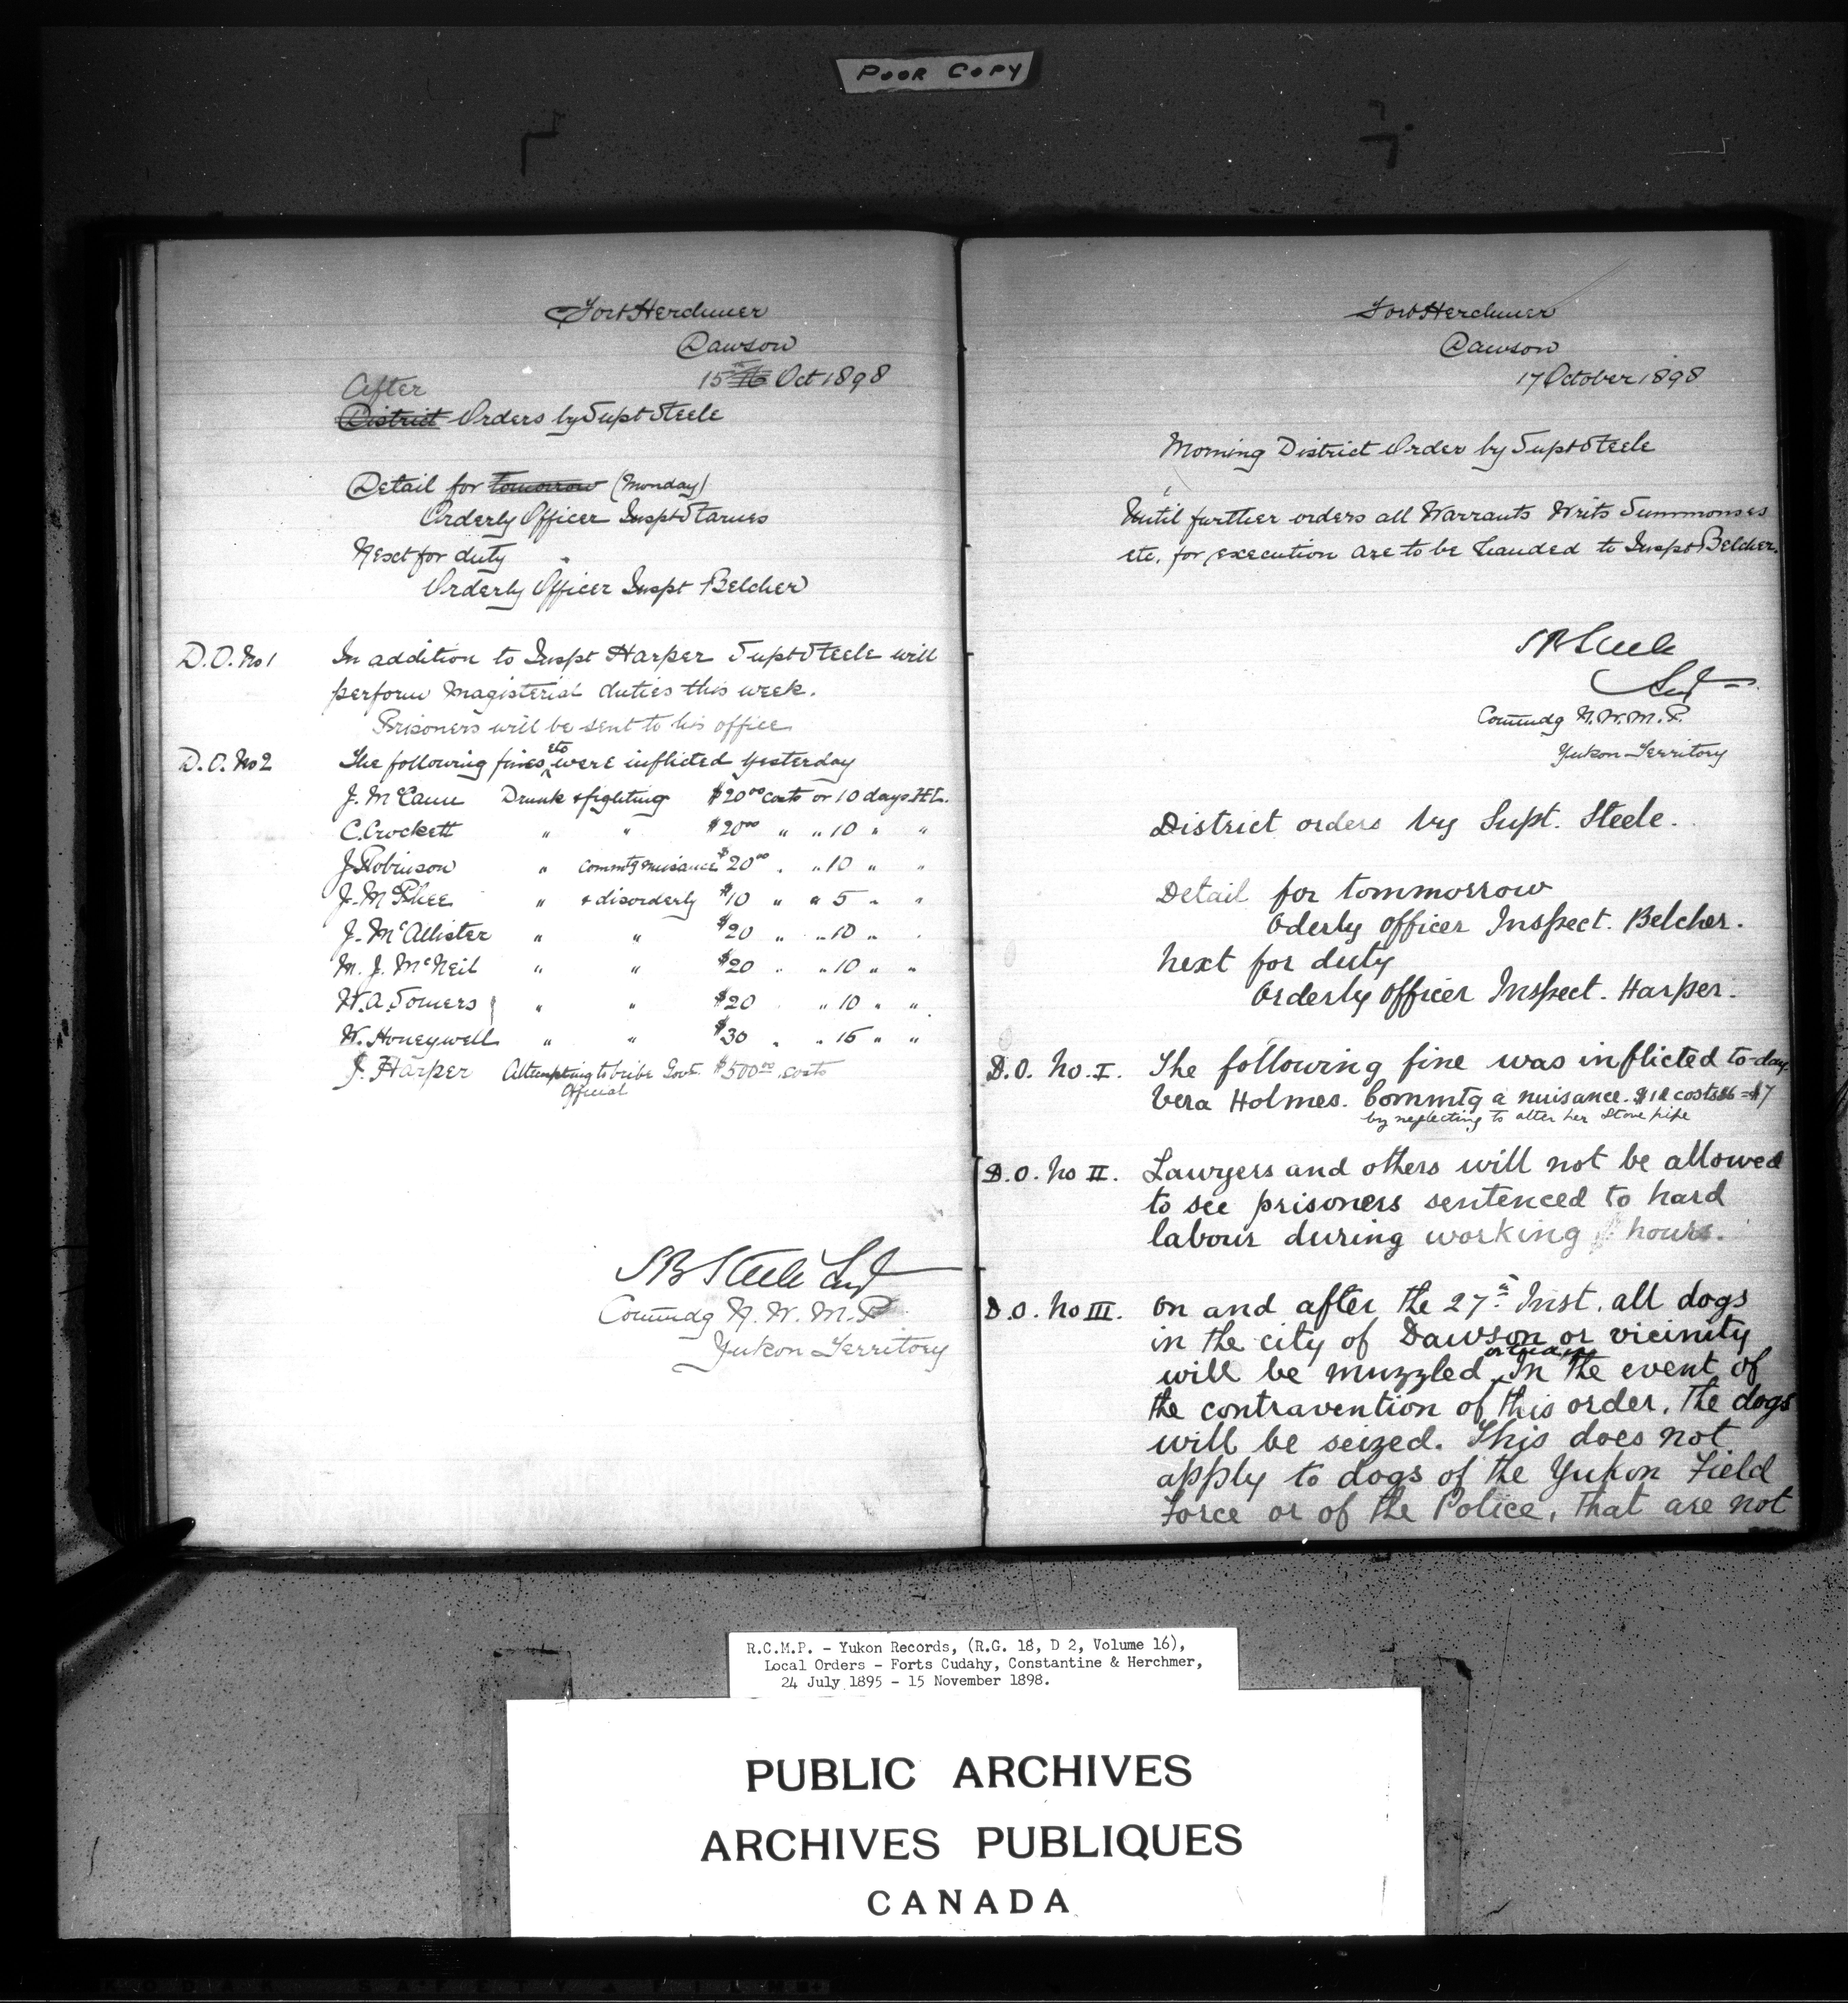 POOR COPY
Fort Herchmer
Dawson
15th 16 Oct 1898
After
District Orders by Supt Steele
Detail for tomorrow (Monday)
Orderly Officer Inspt Starnes
Next for duty
Orderly Officer Inspt Belcher
D.O. No 1 In addition to Inspt Harper Supt Steele will
perform Magisterial duties this week.
Prisoners will be sent to his office
D.O. No 2 The following fines etc were inflicted yesterday
J. McCann Drunk & fighting $20 00 costs or 10 days H.L.
C. Crockett " " $20 00 " " 10 " "
J. Robinson " Commtg nuisance $20 00 " " 10 " "
J. McPhee " & disorderly $10 " " 5 " "
J. McAllister " " $20 " " 10 " "
M. J. McNeil " " $20 " " 10 " "
W. A. Somers " " $20 " 10 " "
W. Honeywell " " $30 " " 15 " "
J. Harper Attempting to bribe Govt. $500 00 costs
Official
S B Steele Supt
Commdg N. W. M. P.
Yukon Territory
Fort Herchmer
Dawson
17 October 1898
Morning District Order by Supt Steele
Until further orders all Warrants Writs Summonses
etc. for execution are to be handed to Inspt Belcher.
S B Steele
Supt
Commdg N. W. M. P.
Yukon Territory
District orders by Supt. Steele.
Detail for tommorrow
Oderly officer Inspect. Belcher.
Next for duty
Orderly officer Inspect. Harper.
D.O. No. I. The following fine was inflicted to-day
Vera Holmes. Commtg a nuisance. $1 & costs $6 = $7
by neglecting to alter her stove pipe
D.O. No II. Lawyers and others will not be allowed
to see prisoners sentenced to hard
labour during working hours.
D.O. No III. On and after the 27th Inst. all dogs
in the city of Dawson or vicinity
will be muzzled In the event of
the contravention of this order, the dogs
will be seized. This does not
apply to dogs of the Yukon Field
Force or of the Police, that are not
R.C.M.P. - Yukon Records, (R.G. 18, D 2, Volume 16),
Local Orders - Forts Cudahy, Constantine & Herchmer,
24 July 1895 - 15 November 1898.
PUBLIC ARCHIVES
ARCHIVES PUBLIQUES
CANADA